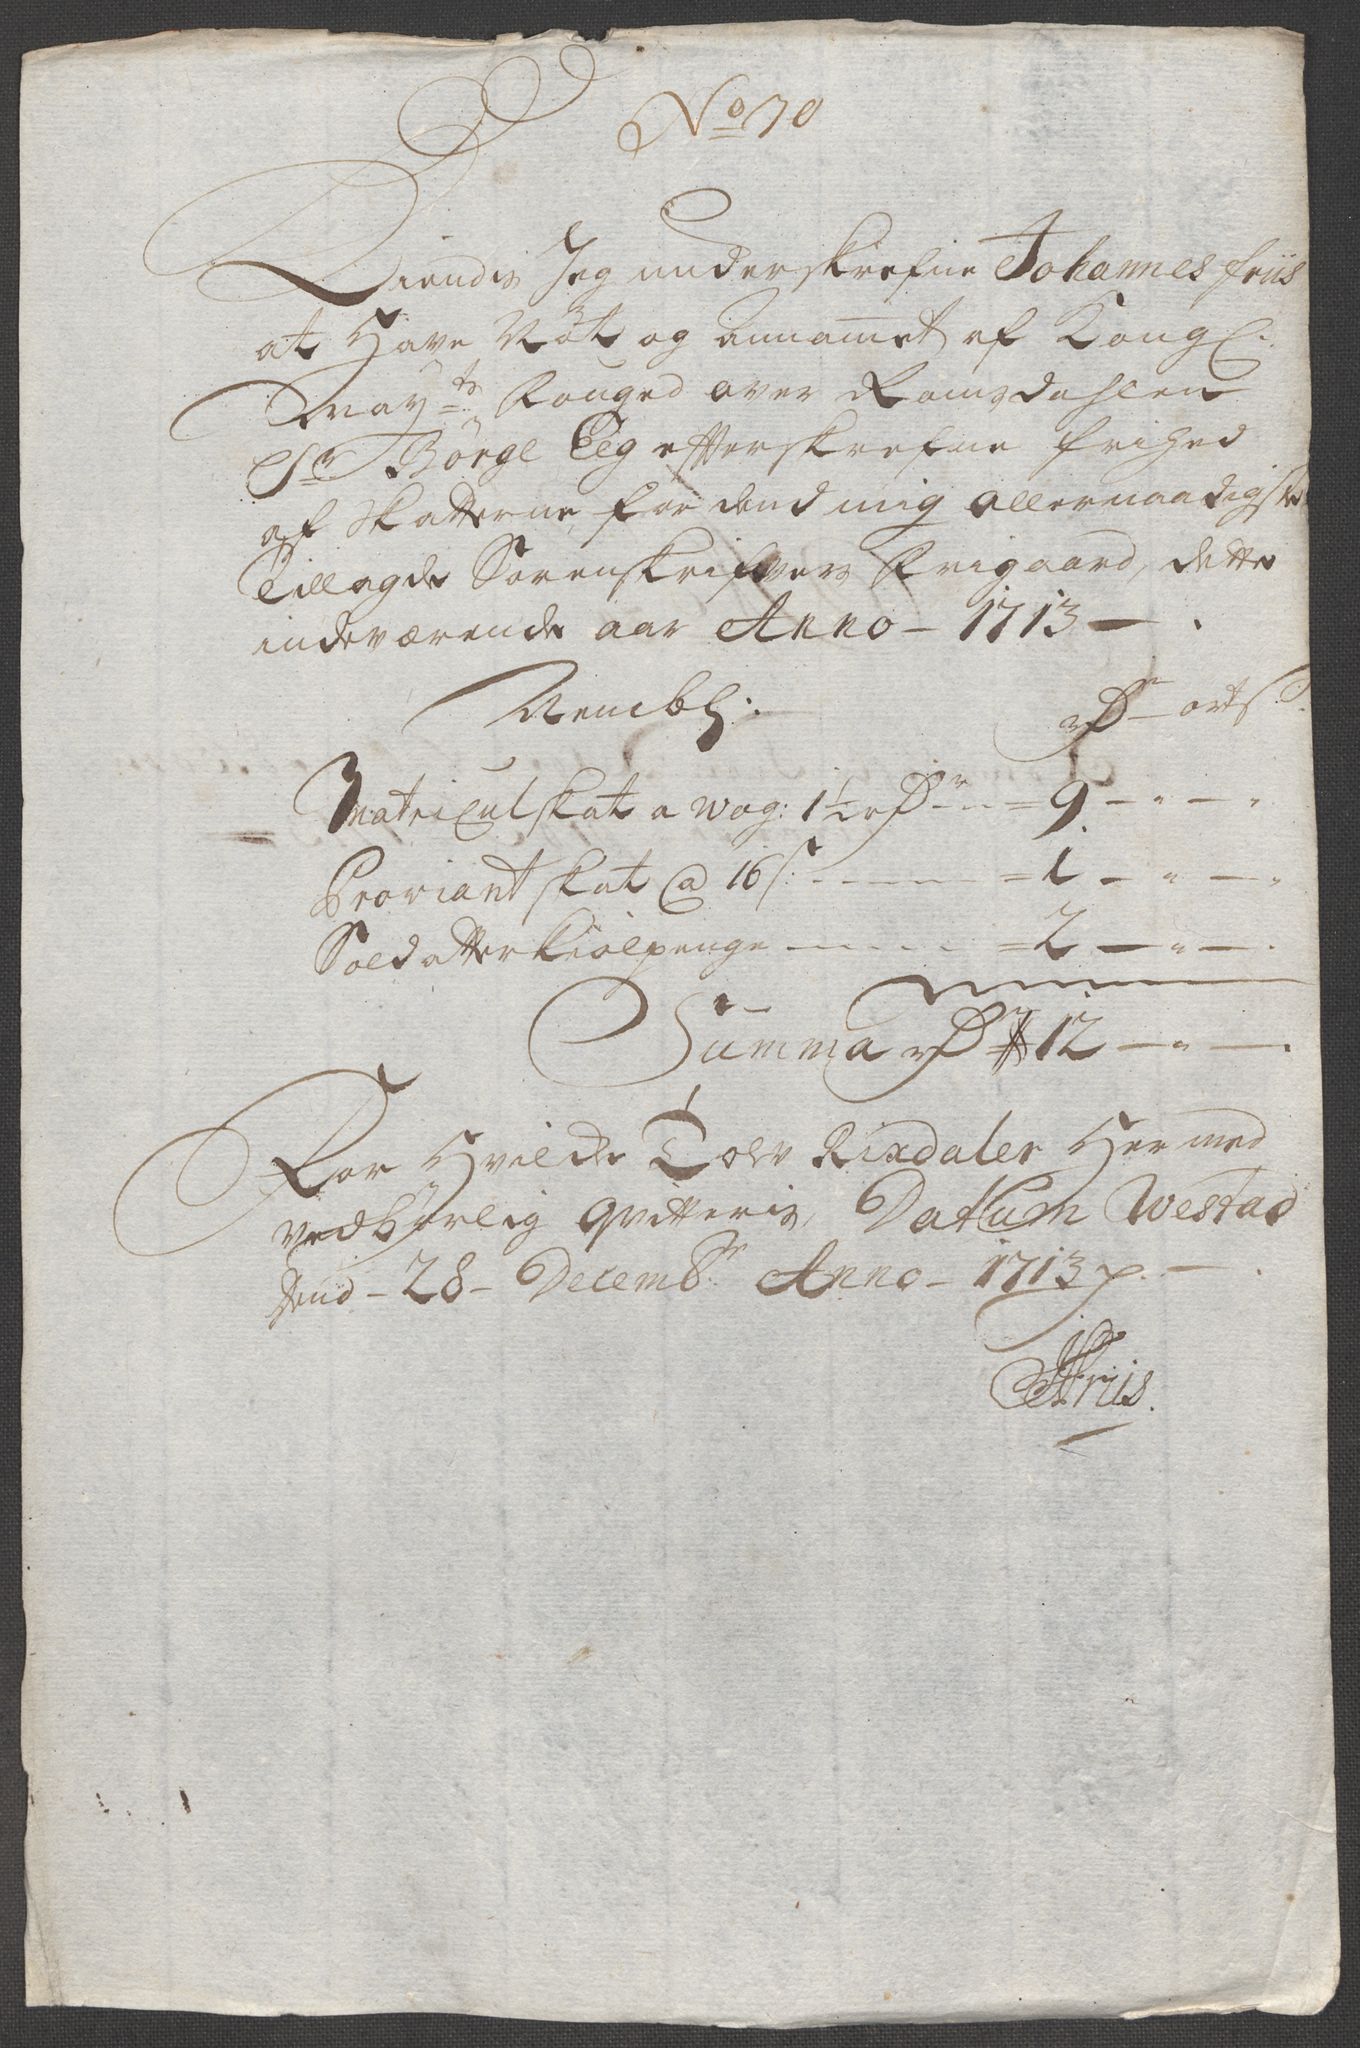 No 30
Kiendis Jeg underskrefne Johannes friis
at Have Nöt og annammet af Kongl:
May:ts Fouged over Romsdahlen
Sr Börge Eeg efterskrefne frihed
af Skatterne, for dend mig allernaadigste
tillagde Sorenskrifvers Frigaard, dette
indeværende aar Anno - 1713 -
Nembl:
rdr - ort s
Matriculskat a wog: 1½ rdr - 9 - " - "
Proviantskat @ 16 s: - 1 - " - "
Soldatterkiolpenge - 2 - " - "
Summa rdr 12 - " -
For Hvilde Tolv Rixdaler Her med
vedbörlig qvitteris, Datum Westad
dend - 28 - Decembr Anno - 1713 p. -
JFriis.